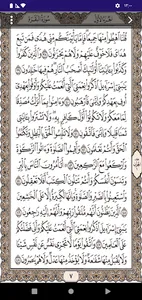 ١٢:٠٠
سُورَةُ البَقَرَةِ
قُلْنَا ٱهْبِطُوا۟ مِنْهَا جَمِيعًا فَإِمَّا يَأْتِيَنَّكُم مِّنِّى هُدًى فَمَن تَبِعَ
هُدَاىَ فَلَا خَوْفٌ عَلَيْهِمْ وَلَا هُمْ يَحْزَنُونَ ٣٨ وَٱلَّذِينَ كَفَرُوا۟
وَكَذَّبُوا۟ بِـَٔايَٰتِنَآ أُو۟لَٰٓئِكَ أَصْحَٰبُ ٱلنَّارِ هُمْ فِيهَا خَٰلِدُونَ ٣٩
يَٰبَنِىٓ إِسْرَٰٓءِيلَ ٱذْكُرُوا۟ نِعْمَتِىَ ٱلَّتِىٓ أَنْعَمْتُ عَلَيْكُمْ وَأَوْفُوا۟
بِعَهْدِىٓ أُوفِ بِعَهْدِكُمْ وَإِيَّٰىَ فَٱرْهَبُونِ ٤٠ وَءَامِنُوا۟ بِمَآ أَنزَلْتُ
مُصَدِّقًا لِّمَا مَعَكُمْ وَلَا تَكُونُوٓا۟ أَوَّلَ كَافِرٍۭ بِهِۦ وَلَا تَشْتَرُوا۟
بِـَٔايَٰتِى ثَمَنًا قَلِيلًا وَإِيَّٰىَ فَٱتَّقُونِ ٤١ وَلَا تَلْبِسُوا۟ ٱلْحَقَّ
بِٱلْبَٰطِلِ وَتَكْتُمُوا۟ ٱلْحَقَّ وَأَنتُمْ تَعْلَمُونَ ٤٢ وَأَقِيمُوا۟ ٱلصَّلَوٰةَ
وَءَاتُوا۟ ٱلزَّكَوٰةَ وَٱرْكَعُوا۟ مَعَ ٱلرَّٰكِعِينَ ٤٣ أَتَأْمُرُونَ ٱلنَّاسَ
بِٱلْبِرِّ وَتَنسَوْنَ أَنفُسَكُمْ وَأَنتُمْ تَتْلُونَ ٱلْكِتَٰبَ أَفَلَا تَعْقِلُونَ ٤٤
وَٱسْتَعِينُوا۟ بِٱلصَّبْرِ وَٱلصَّلَوٰةِ وَإِنَّهَا لَكَبِيرَةٌ إِلَّا عَلَى ٱلْخَٰشِعِينَ ٤٥
ٱلَّذِينَ يَظُنُّونَ أَنَّهُم مُّلَٰقُوا۟ رَبِّهِمْ وَأَنَّهُمْ إِلَيْهِ رَٰجِعُونَ ٤٦
يَٰبَنِىٓ إِسْرَٰٓءِيلَ ٱذْكُرُوا۟ نِعْمَتِىَ ٱلَّتِىٓ أَنْعَمْتُ عَلَيْكُمْ وَأَنِّى فَضَّلْتُكُمْ
عَلَى ٱلْعَٰلَمِينَ ٤٧ وَٱتَّقُوا۟ يَوْمًا لَّا تَجْزِى نَفْسٌ عَن نَّفْسٍ شَيْـًٔا
وَلَا يُقْبَلُ مِنْهَا شَفَٰعَةٌ وَلَا يُؤْخَذُ مِنْهَا عَدْلٌ وَلَا هُمْ يُنصَرُونَ ٤٨
٧